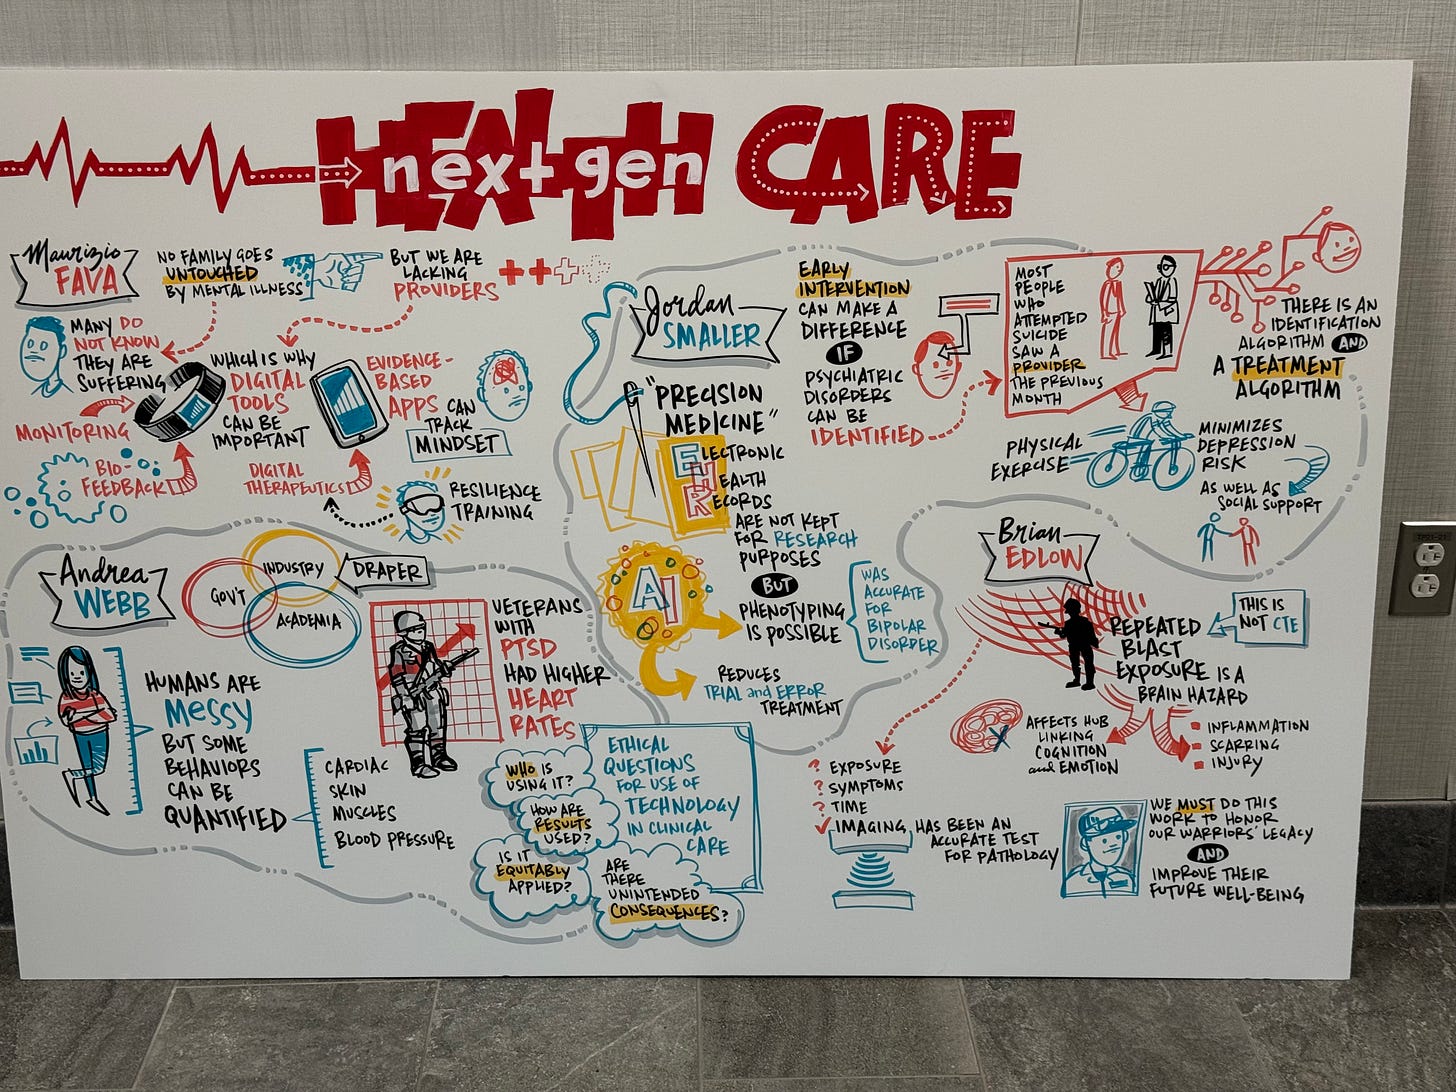 HEALTH
next gen CARE
Maurizio
FAVA
NO FAMILY GOES
UNTOUCHED
BY MENTAL ILLNESS
BUT WE ARE
LACKING
PROVIDERS
MANY DO
NOT KNOW
THEY ARE
SUFFERING
WHICH IS WHY
DIGITAL
TOOLS
CAN BE
IMPORTANT
MONITORING
BIO-
FEEDBACK
EVIDENCE-
BASED
APPS CAN
TRACK
MINDSET
DIGITAL
THERAPEUTICS
RESILIENCE
TRAINING
Andrea
WEBB
GOV'T
INDUSTRY
ACADEMIA
DRAPER
HUMANS ARE
MESSY
BUT SOME
BEHAVIORS
CAN BE
QUANTIFIED
CARDIAC
SKIN
MUSCLES
BLOOD PRESSURE
VETERANS
WITH
PTSD
HAD HIGHER
HEART
RATES
ETHICAL
QUESTIONS
FOR USE OF
TECHNOLOGY
IN CLINICAL
CARE
WHO IS
USING IT?
HOW ARE
RESULTS
USED?
IS IT
EQUITABLY
APPLIED?
ARE
THERE
UNINTENDED
CONSEQUENCES?
Jordan
SMALLER
"PRECISION
MEDICINE"
ELECTRONIC
HEALTH
RECORDS
ARE NOT KEPT
FOR RESEARCH
PURPOSES
BUT
PHENOTYPING
IS POSSIBLE
WAS
ACCURATE
FOR
BIPOLAR
DISORDER
AI
REDUCES
TRIAL and ERROR
TREATMENT
EARLY
INTERVENTION
CAN MAKE A
DIFFERENCE
IF
PSYCHIATRIC
DISORDERS
CAN BE
IDENTIFIED
MOST
PEOPLE
WHO
ATTEMPTED
SUICIDE
SAW A
PROVIDER
THE PREVIOUS
MONTH
THERE IS AN
IDENTIFICATION
ALGORITHM AND
A TREATMENT
ALGORITHM
PHYSICAL
EXERCISE
MINIMIZES
DEPRESSION
RISK
AS WELL AS
SOCIAL SUPPORT
Brian
EDLOW
REPEATED
BLAST
EXPOSURE IS A
BRAIN HAZARD
THIS IS
NOT CTE
AFFECTS HUB
LINKING
COGNITION
and EMOTION
INFLAMMATION
SCARRING
INJURY
? EXPOSURE
? SYMPTOMS
? TIME
✓ IMAGING HAS BEEN AN
ACCURATE TEST
FOR PATHOLOGY
WE MUST DO THIS
WORK TO HONOR
OUR WARRIORS' LEGACY
AND
IMPROVE THEIR
FUTURE WELL-BEING